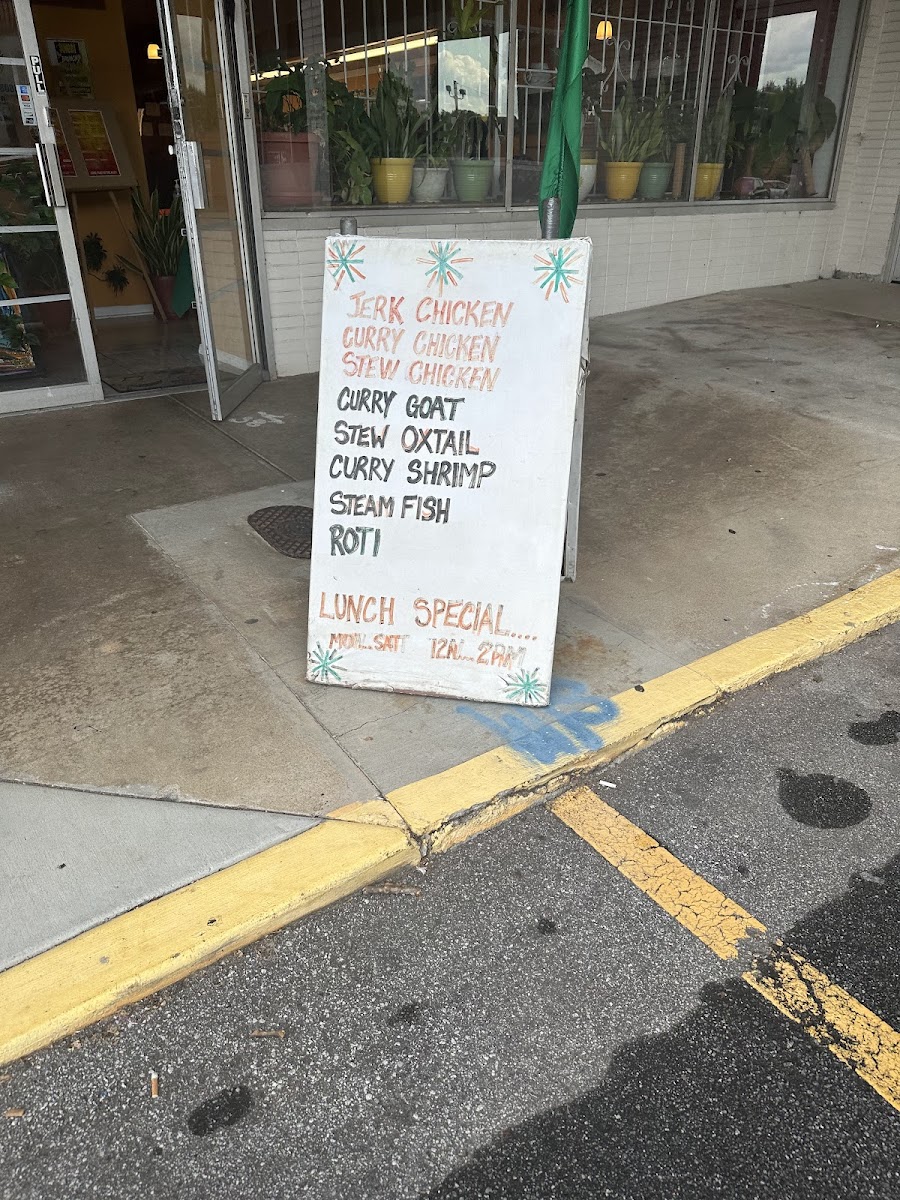 PULL
JERK CHICKEN
CURRY CHICKEN
STEW CHICKEN
CURRY GOAT
STEW OXTAIL
CURRY SHRIMP
STEAM FISH
ROTI
LUNCH SPECIAL....
MON...SAT 12N...2PM